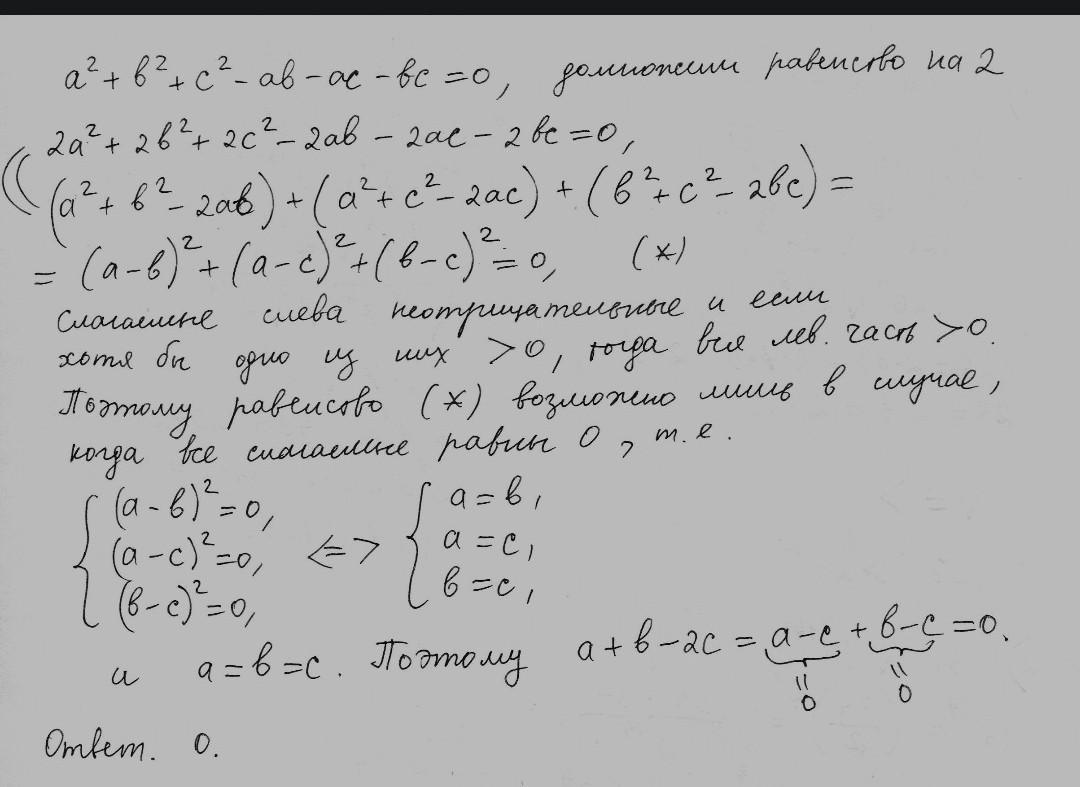 a² + в² + c² - ав - ас - вс = 0, домножим равенство на 2
2a² + 2в² + 2c² - 2ав - 2ас - 2вс = 0,
((a² + в² - 2ав) + (a² + c² - 2ac) + (в² + c² - 2вс) =
= (a-в)² + (a-c)² + (в-c)² = 0, (*)
Слагаемые слева неотрицательные и если
хотя бы одно из них >0, тогда вся лев. часть >0.
Поэтому равенство (*) возможно лишь в случае,
когда все слагаемые равны 0, т.е.
(a-в)² = 0, a = в,
(a-c)² = 0, <=> a = c,
(в-c)² = 0, в = c,
и a = в = c. Поэтому a + в - 2c = a-c + в-c = 0.
= =
0 0
Ответ. 0.